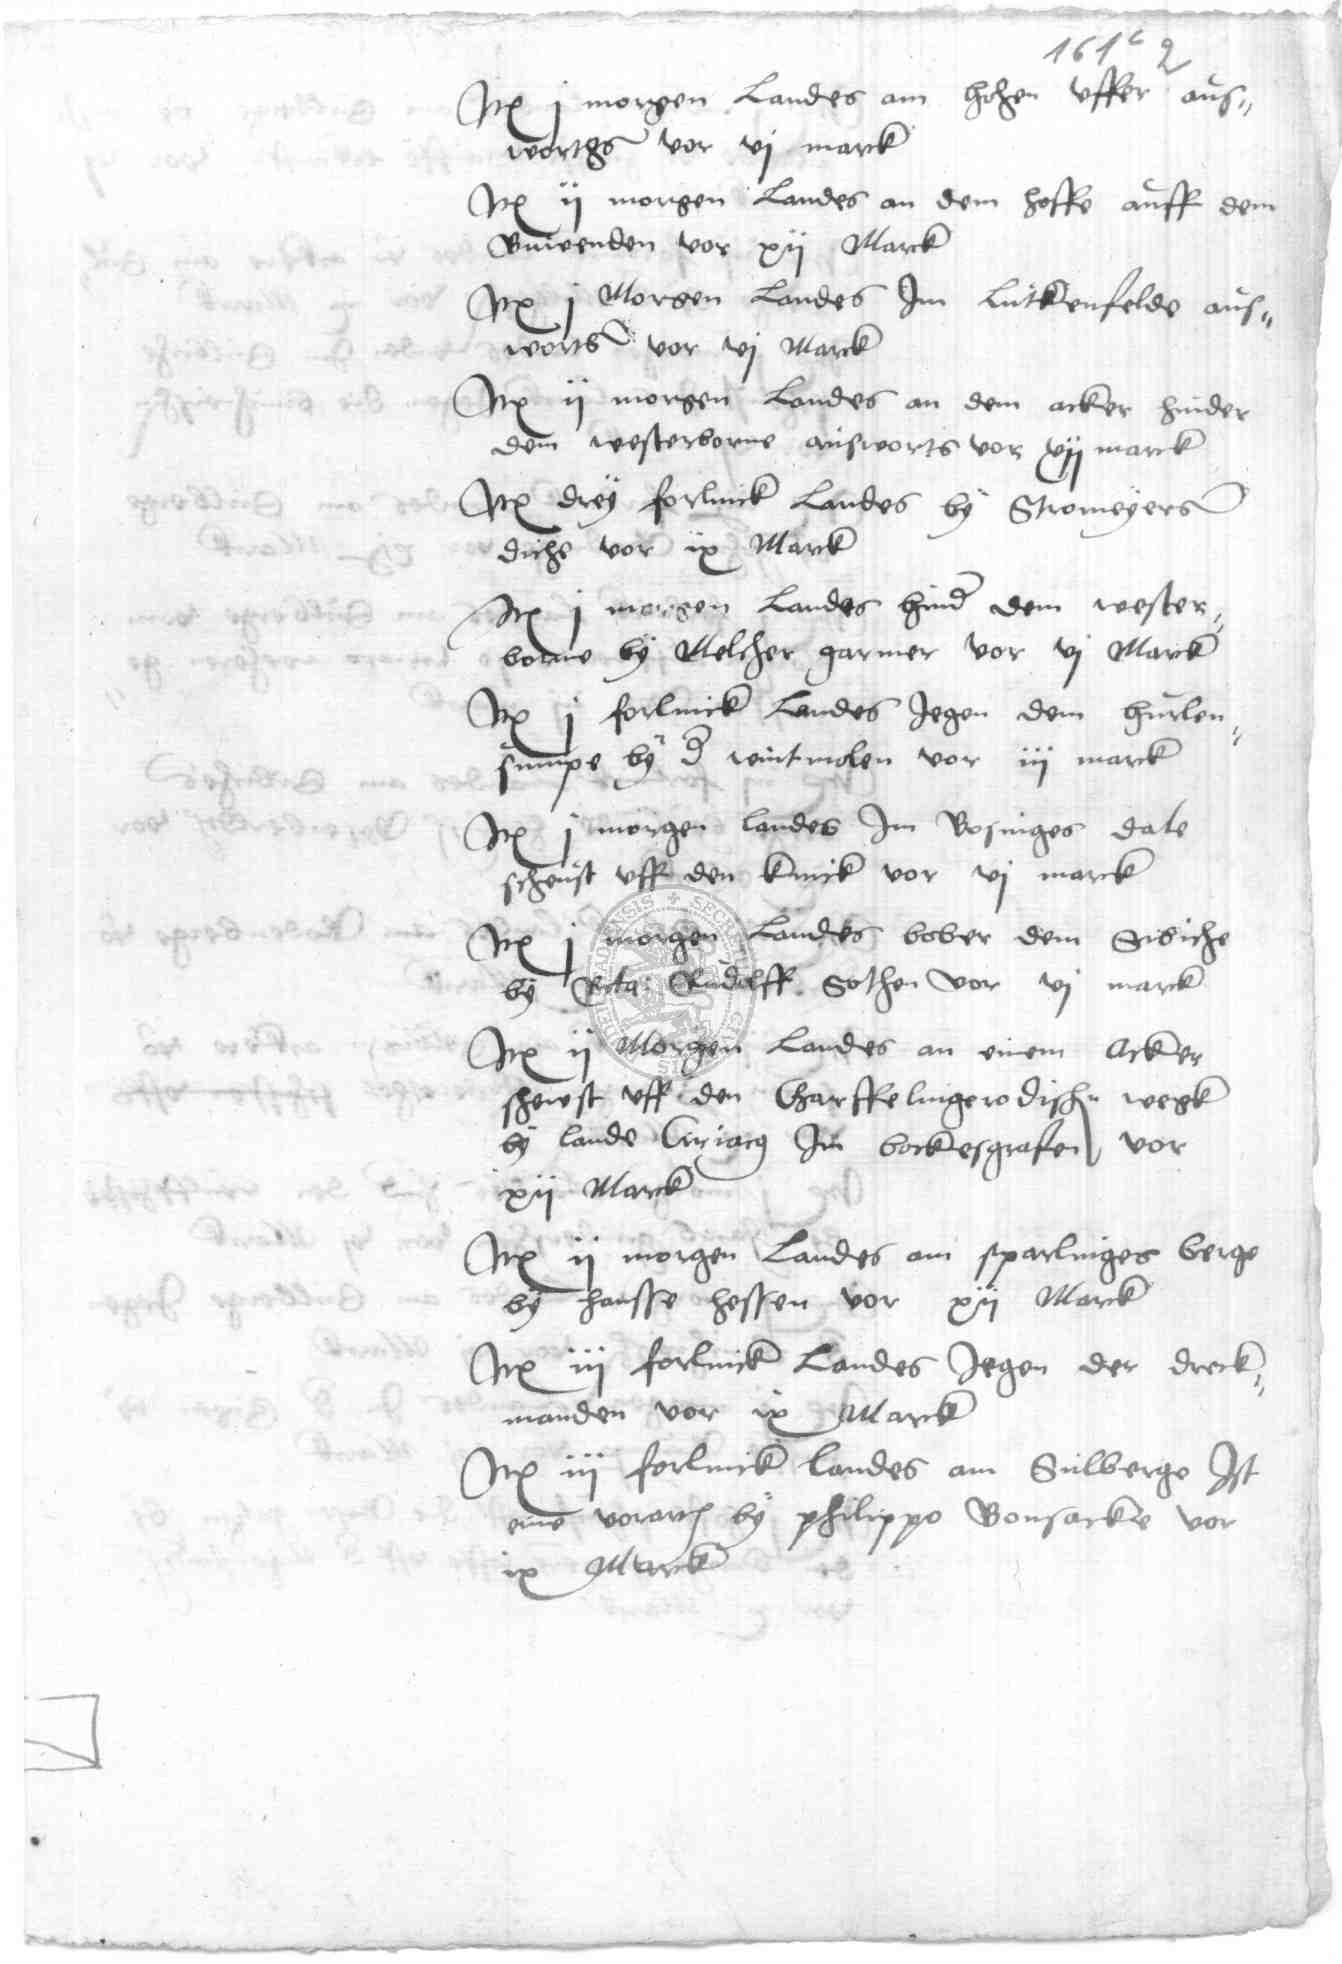 161c 2
Itē j morgen Landes am hohen vffer aus=
wortes vor vj marck
Itē ij morgen Landes an dem hoffe auff dem
vor xij Marck
Itē j Morgen Landes Im Lutkenfelde aus=
worts vor vj Marck
Itē ij morgen Landes an dem acker hinder
dem westerborne ausworts vor xij marck
Itē drey forlinck Landes by Stromeyers
diche vor ix Marck
Itē j morgen Landes hind dem wester=
borne by Melcher garmer vor vj Marck
Itē j forlinck Landes Jegen dem hurlen=
sumpe by d wintmolen vor iij marck
Itē j morgen landes Im Bosinges dale
scheust vff den knick vor vj marck
Itē j morgen Landes bober dem
by Rudolff Sothen vor vj marck
Itē ij Morgen Landes an einem Acker
shewst vff den Charffelingerodishn wegk
by lande Ciriacy Im bockesgrafen vor
xij Marck
Itē ij morgen Landes am sparlinges berge
by hansse hessen vor xij Marck
Itē iij forlinck Landes Jegen der dreck=
manden vor ix Marck
Itē iij forlinck landes am Sulberge Ist
eine by philippo Bonsacke vor
ix Marck